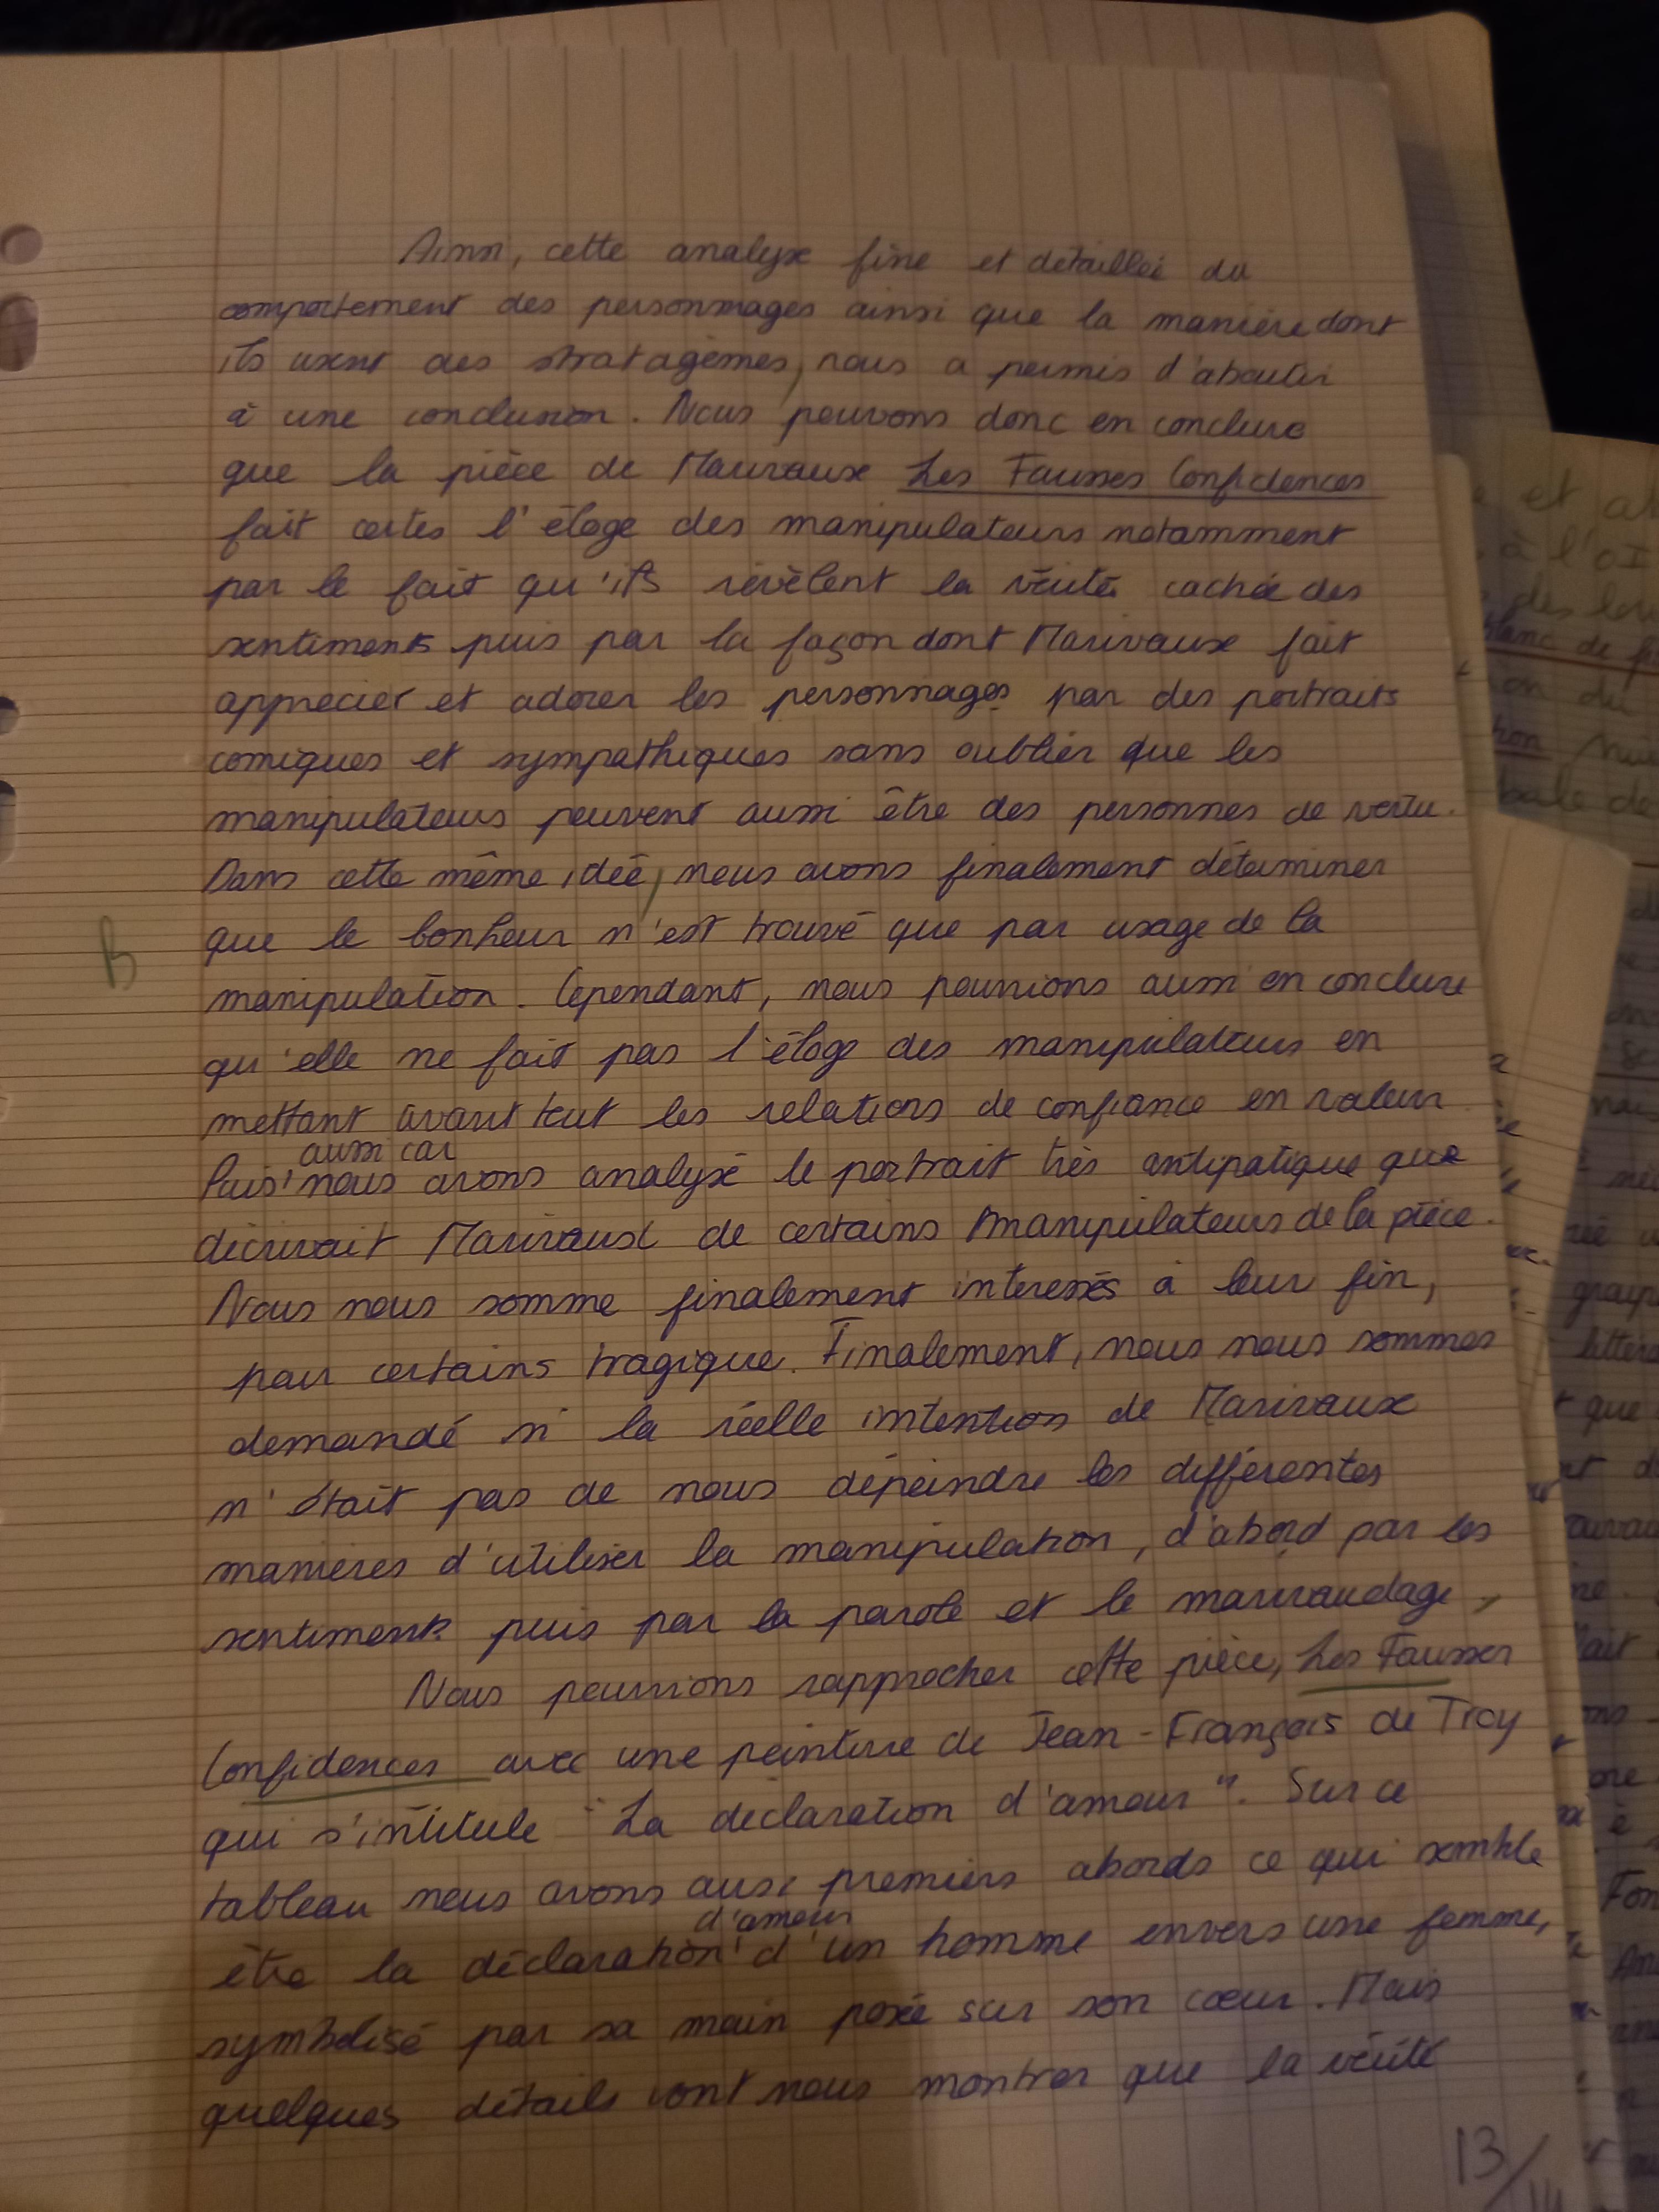 Ainsi, cette analyse fine et détaillée du
comportement des personnages ainsi que la manière dont
ils usent des stratagèmes, nous a permis d'aboutir
à une conclusion. Nous pouvons donc en conclure
que la pièce de Marivaux Les Fausses Confidences
fait certes l'éloge des manipulateurs notamment
par le fait qu'ils révèlent la vérité cachée des
sentiments puis par la façon dont Marivaux fait
apprecier et adorer les personnages par des portraits
comiques et sympathiques sans oublier que les
manipulateurs peuvent aussi être des personnes de vertu.
Dans cette même idée, nous avons finalement déterminer
que le bonheur n'est trouvé que par usage de la
B
manipulation. Cependant, nous pourrions aussi en conclure
qu'elle ne fait pas l'éloge des manipulateurs en
mettant avant tout les relations de confiance en valeur
aussi car
Puis nous avons analysé le portrait très antipatique que
décrivait Marivaux de certains manipulateurs de la pièce.
Nous nous somme finalement interessés à leur fin,
pour certains tragique. Finalement, nous nous sommes
demandé si la réelle intention de Marivaux
n'était pas de nous dépeindre les différentes
manières d'utiliser la manipulation, d'abord par les
sentiments puis par la parole et le marivaudage.
Nous pourrions rapprocher cette pièce, Les Fausses
Confidences avec une peinture de Jean-François de Troy
qui s'intitule "La déclaration d'amour". Sur ce
tableau nous avons aux premiers abords ce qui semble
d'amour
être la déclaration d'un homme envers une femme,
symbolisé par sa main posée sur son cœur. Mais
quelques détails vont nous montrer que la vérité
13/
et
à l'OI
des
blanc de
tion
que
Fon